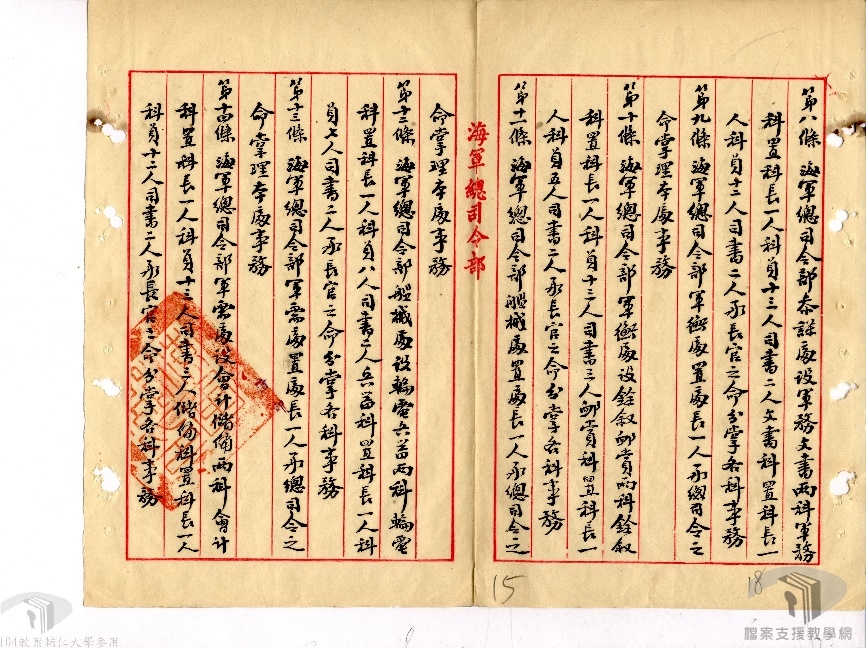 第八條 海軍總司令部參謀處设軍務文書兩科軍務
科置科長一人科員十三人司書二人文書科置科長一
人科員十二人司書二人承長官之命分掌各科事務
第九條 海軍總司令部軍衡處置處長一人承總司令之
命掌理本處事務
第十條 海軍總司令部軍衡處设銓敘卹賞兩科銓敘
科置科長一人科員十二人司書三人卹賞科置科長一
人科員五人司書二人承長官之命分掌各科事務
第十一條 海軍總司令部艦械處置處長一人承總司令之
海軍總司令部
命掌理本處事務
第十二條 海軍總司令部艦械處设輪電兵器兩科輪電
科置科長一人科員八人司書二人兵器科置科長一人科
員七人司書二人承長官之命分掌各科事務
第十三條 海軍總司令部軍需處置處長一人承總司令之
命掌理本處事務
第十四條 海軍總司令部軍需處设會計儲備兩科會計
科置科長一人科員十三人司書三人儲備科置科長一人
科員十二人司書二人承長官之命分掌各科事務
15
18
檔案支援教學網
104教案輔仁大學參用